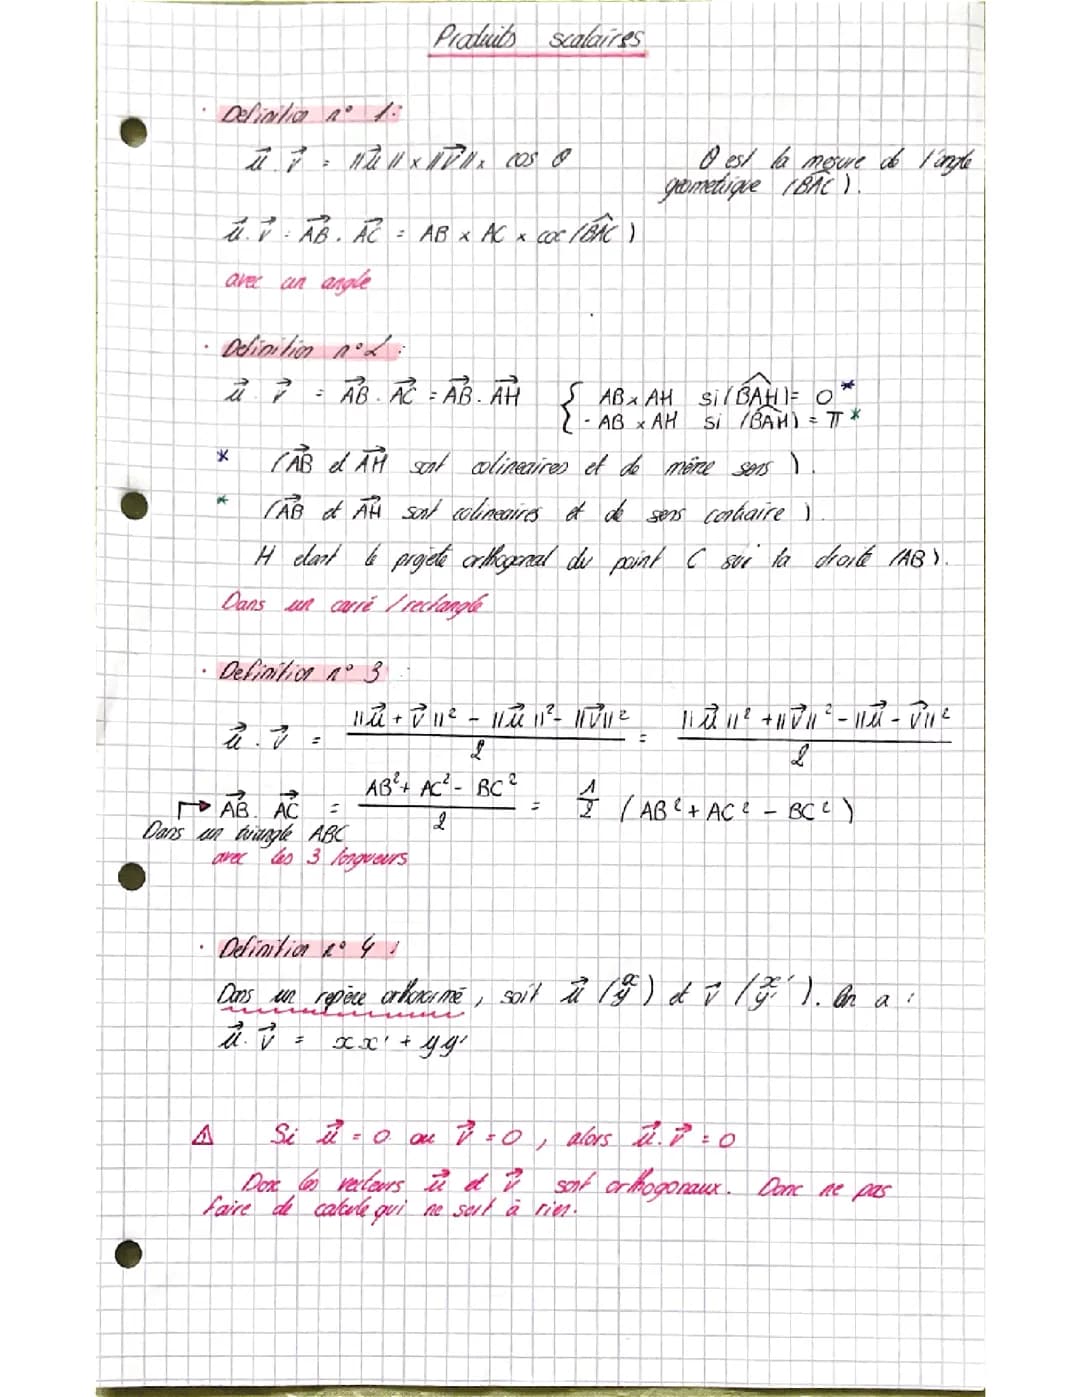 Produits scalaires
· Definition n° 1:
u⃗ . v⃗ = ||u⃗|| × ||v⃗|| × cos θ
θ est la mesure de l'angle
geometrique (BAC).
u⃗ . v⃗ = AB⃗ . AC⃗ = AB × AC × cos (BAC)
avec un angle
· Definition n°2 :
u⃗ . v⃗ = AB⃗ . AC⃗ = AB⃗ . AH⃗ { AB × AH si (BAH) = 0 *
- AB × AH si (BAH) = π *
* (AB⃗ et AH⃗ sont colineaires et de même sens ).
* (AB⃗ et AH⃗ sont colineaires et de sens contraire ).
H etant le projeté orthogonal du point C sur la droite (AB).
Dans un carré / rectangle
· Definition n° 3 :
u⃗ . v⃗ = (||u⃗ + v⃗||² - ||u⃗||² - ||v⃗||²) / 2 = (||u⃗||² + ||v⃗||² - ||u⃗ - v⃗||²) / 2
↱ AB⃗ . AC⃗ = (AB² + AC² - BC²) / 2 = 1/2 (AB² + AC² - BC²)
Dans un triangle ABC
avec les 3 longueurs
· Definition n° 4 :
Dans un repère orthonormé, soit u⃗ (x y) et v⃗ (x' y'). On a :
u⃗ . v⃗ = xx' + yy'
⚠ Si u⃗ = 0 ou v⃗ = 0, alors u⃗ . v⃗ = 0
Donc les vecteurs u⃗ et v⃗ sont orthogonaux. Donc ne pas
faire de calcule qui ne sert à rien.